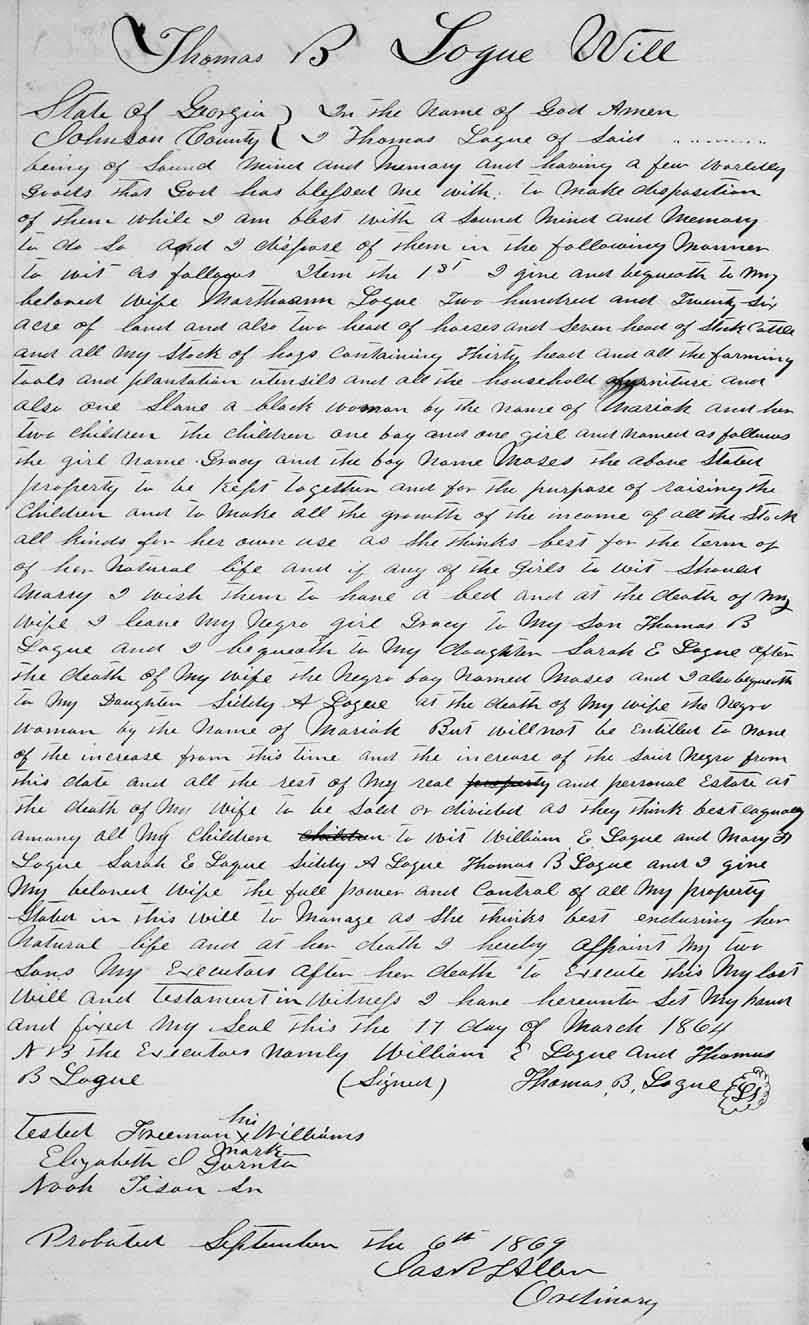 Thomas B Logue Will
State of Georgia } In the Name of God Amen
Johnson County { I Thomas Logue of Said ..........
being of Sound Mind and Memory and having a few worldly
Goods that God has blessed me with. to Make disposition
of them while I am blest with a Sound Mind and Memory
to do So and I dispose of them in the following Manner
to wit as follows Item the 1st I give and bequeath to My
beloved wife Marthaann Logue Two hundred and Twenty Six
acre of land and also two head of horses and Seven head of Stock Cattle
and all My Stock of hogs Containing Thirty head and all the farming
tools and plantation utensils and all the household furniture and
also one Slave a black woman by the name of Mariah and her
two children the children one boy and one girl and named as follows
the girl name Gracy and the boy name Moses the above Stated
property to be Kept together and for the purpose of raising the
Children and to Make all the growth of the income of all the Stock
all kinds for her own use as She thinks best for the term of
of her Natural life and if any of the Girls to wit Should
Marry I wish them to have a bed and at the death of My
Wife I leave My Negro girl Gracy to My Son Thomas B
Logue and I bequeath to My daughter Sarah E Logue after
the death of My wife the Negro boy Named Moses and I also bequeath
to My Daughter Siddy A Logue at the death of My wife the Negro
Woman by the Name of Mariah But will not be Entitled to None
of the increase from this time and the increase of the Said Negro from
this date and all the rest of My real property and personal Estate at
the death of My Wife to be Sold or divided as they think best equally
among all My Children Children to wit William E Logue and Mary F
Logue Sarah E Logue Siddy A Logue Thomas B Logue and I give
My beloved Wife the full power and Control of all My property
Stated in this will to Manage as She thinks best enduring her
Natural life and at her death I hereby appoint My two
Sons My Executors after her death to Execute this My last
Will and Testament in Witness I have hereunto Set My hand
and fixed My Seal this the 17 day of March 1864
N B the Executors namly William E Logue and Thomas
B Logue (Signed) Thomas B, Logue LS
Tested Freeman his x mark Williams
Elizabeth J
Noah Tison Sr
Probated September the 6th 1869
Jas R L Allen
Ordinary